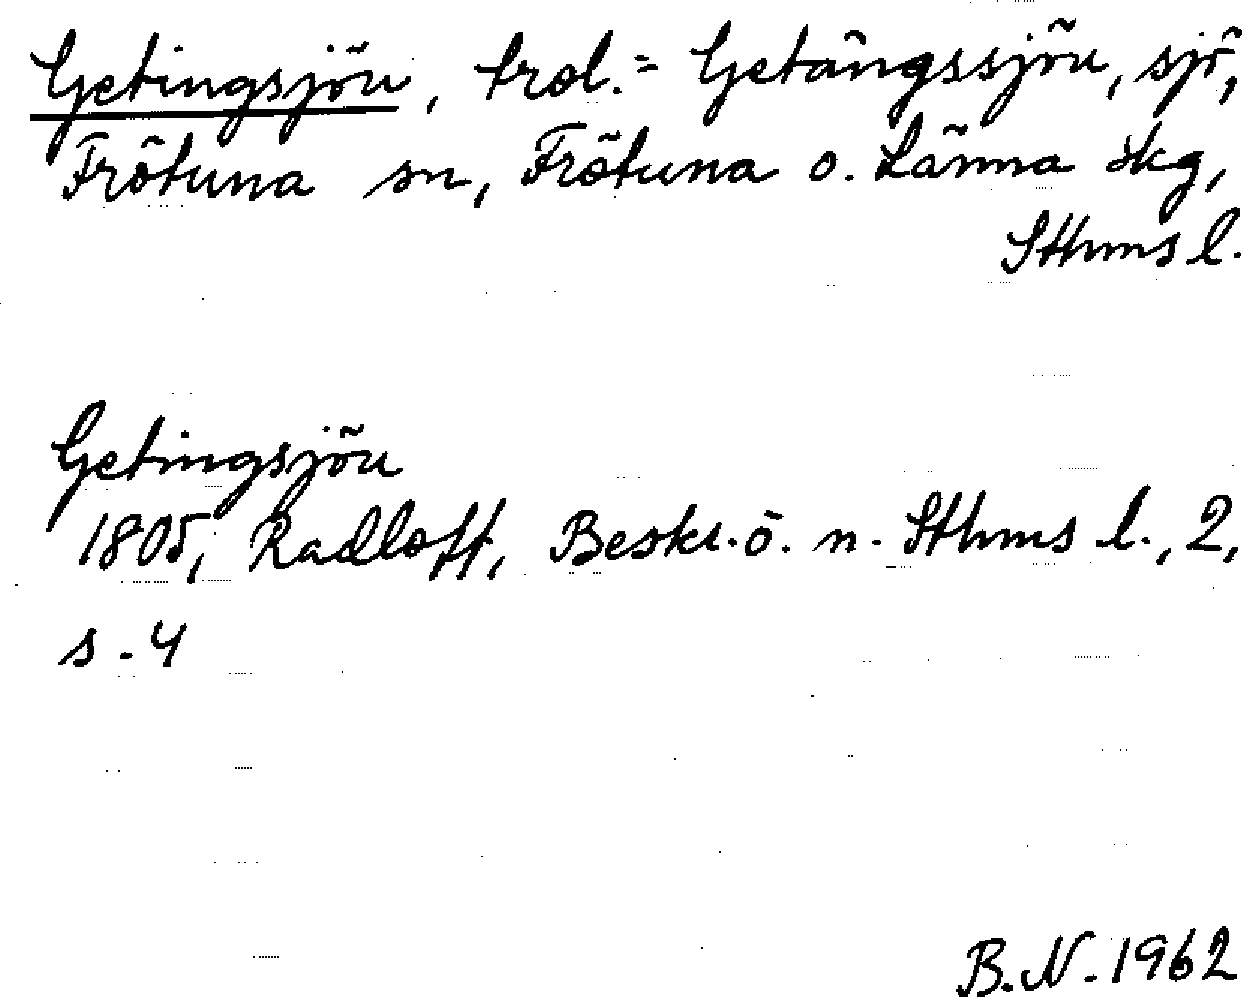 Getingsjön, trol. = Getängssjön, sjö,
Frötuna sn, Frötuna o. Länna skg,
Sthms l.
Getingsjön
1805, Radloff, Beskr. ö. n. Sthms l., 2,
s. 4
B.N. 1962